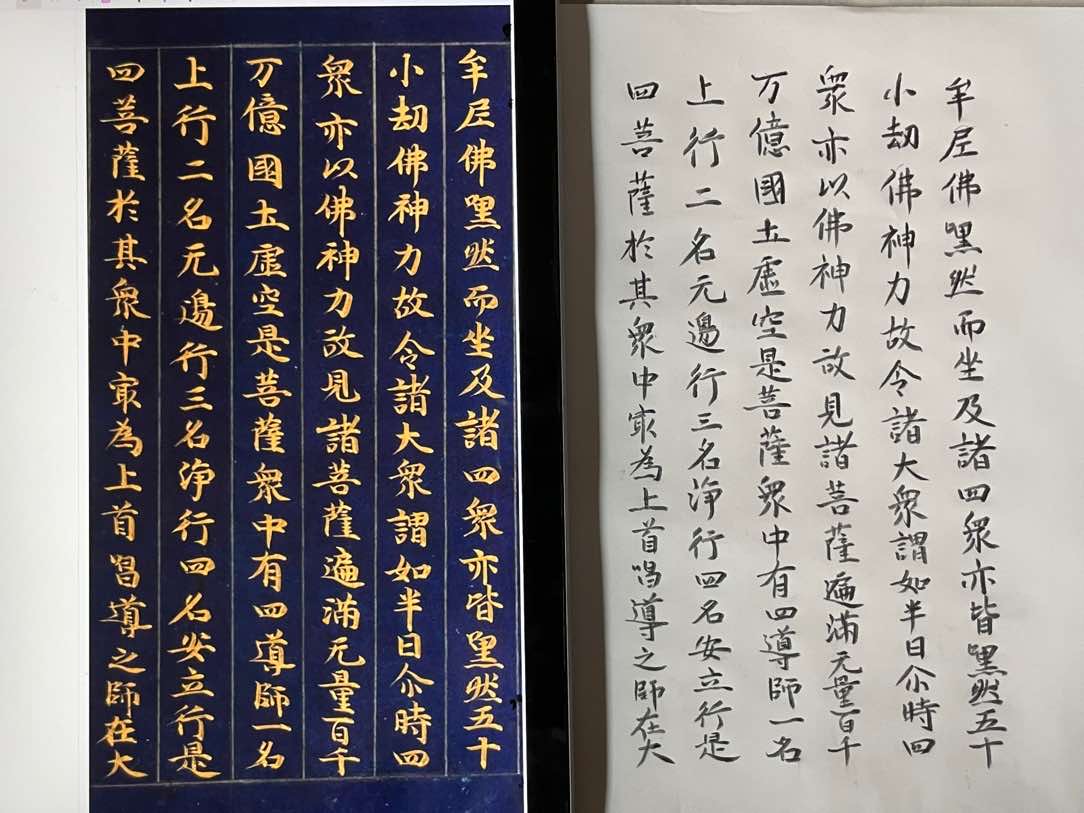 牟尼佛嘿然而坐及諸四衆亦皆嘿然五十
小劫佛神力故令諸大衆謂如半日尒時四
衆亦以佛神力故見諸菩薩遍滿无量百千
万億國土虛空是菩薩衆中有四導師一名
上行二名无邊行三名淨行四名安立行是
四菩薩於其衆中㝡為上首唱導之師在大
牟尼佛嘿然而坐及諸四衆亦皆嘿然五十
小劫佛神力故令諸大衆謂如半日尒時四
衆亦以佛神力故見諸菩薩遍滿无量百千
万億國土虛空是菩薩衆中有四導師一名
上行二名无邊行三名淨行四名安立行是
四菩薩於其衆中㝡為上首唱導之師在大